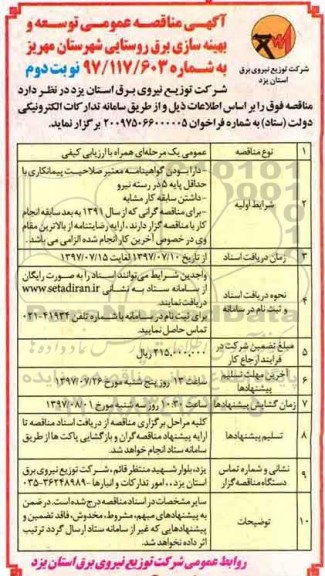 آگهی مناقصه عمومی توسعه و
بهینه سازی برق روستایی شهرستان مهریز
به شماره ۹۷/۱۱۷/۶۰۳ نوبت دوم
شرکت توزیع نیروی برق
استان یزد
شرکت توزیع نیروی برق استان یزد در نظر دارد
مناقصه فوق را بر اساس اطلاعات ذیل و از طریق سامانه تدارکات الکترونیکی
دولت (ستاد) به شماره فراخوان ۲۰۰۹۷۵۰۶۶۰۰۰۰۰۵ برگزار نماید.
۱ نوع مناقصه عمومی یک مرحله‌ای همراه با ارزیابی کیفی
۲ شرایط اولیه
- دارا بودن گواهینامه معتبر صلاحیت پیمانکاری با
حداقل پایه ۵ در رسته نیرو
- داشتن سابقه کار مشابه
- برای مناقصه گرانی که از سال ۱۳۹۱ به بعد سابقه انجام
کار با مناقصه گزار دارند، ارایه رضایتنامه از بالاترین مقام
وی در خصوص آخرین کار انجام شده الزامی می باشد.
۳ زمان دریافت اسناد از تاریخ ۱۳۹۷/۰۷/۱۰ لغایت ۱۳۹۷/۰۷/۱۵
۴ نحوه دریافت اسناد
و ثبت نام در سامانه
واجدین شرایط می‌توانند اسناد را به صورت رایگان
از سامانه ستاد به نشانی www.setadiran.ir
دریافت نمایند.
برای ثبت نام در سامانه با شماره تلفن ۴۱۹۳۴-۰۲۱
تماس حاصل نمایید.
۵ مبلغ تضمین شرکت در
فرایند ارجاع کار
۲۱۵,۰۰۰,۰۰۰ ریال
۶ آخرین مهلت تسلیم
پیشنهادها
ساعت ۱۳ روز پنج شنبه مورخ ۱۳۹۷/۰۷/۲۶
۷ زمان گشایش پیشنهادها ساعت ۱۰:۳۰ روز سه شنبه مورخ ۱۳۹۷/۰۸/۰۱
۸ تسلیم پیشنهادها
کلیه مراحل برگزاری مناقصه از دریافت اسناد مناقصه تا
ارایه پیشنهاد مناقصه‌گران و بازگشایی پاکت ها از طریق
سامانه ستاد انجام خواهد شد.
۹ نشانی و شماره تماس
دستگاه مناقصه‌گزار
یزد، بلوار شهید منتظر قائم، شرکت توزیع نیروی برق
استان یزد، امور تدارکات و انبارها ۳۶۲۴۸۹۸۹-۰۳۵
۱۰ توضیحات
سایر مشخصات در اسناد مناقصه درج شده است. در ضمن
به پیشنهادهای مبهم، مشروط، مخدوش، فاقد تضمین و
پیشنهادهایی که غیر از سامانه ستاد ارسال گردد ترتیب
اثر داده نخواهد شد.
روابط عمومی شرکت توزیع نیروی برق استان یزد